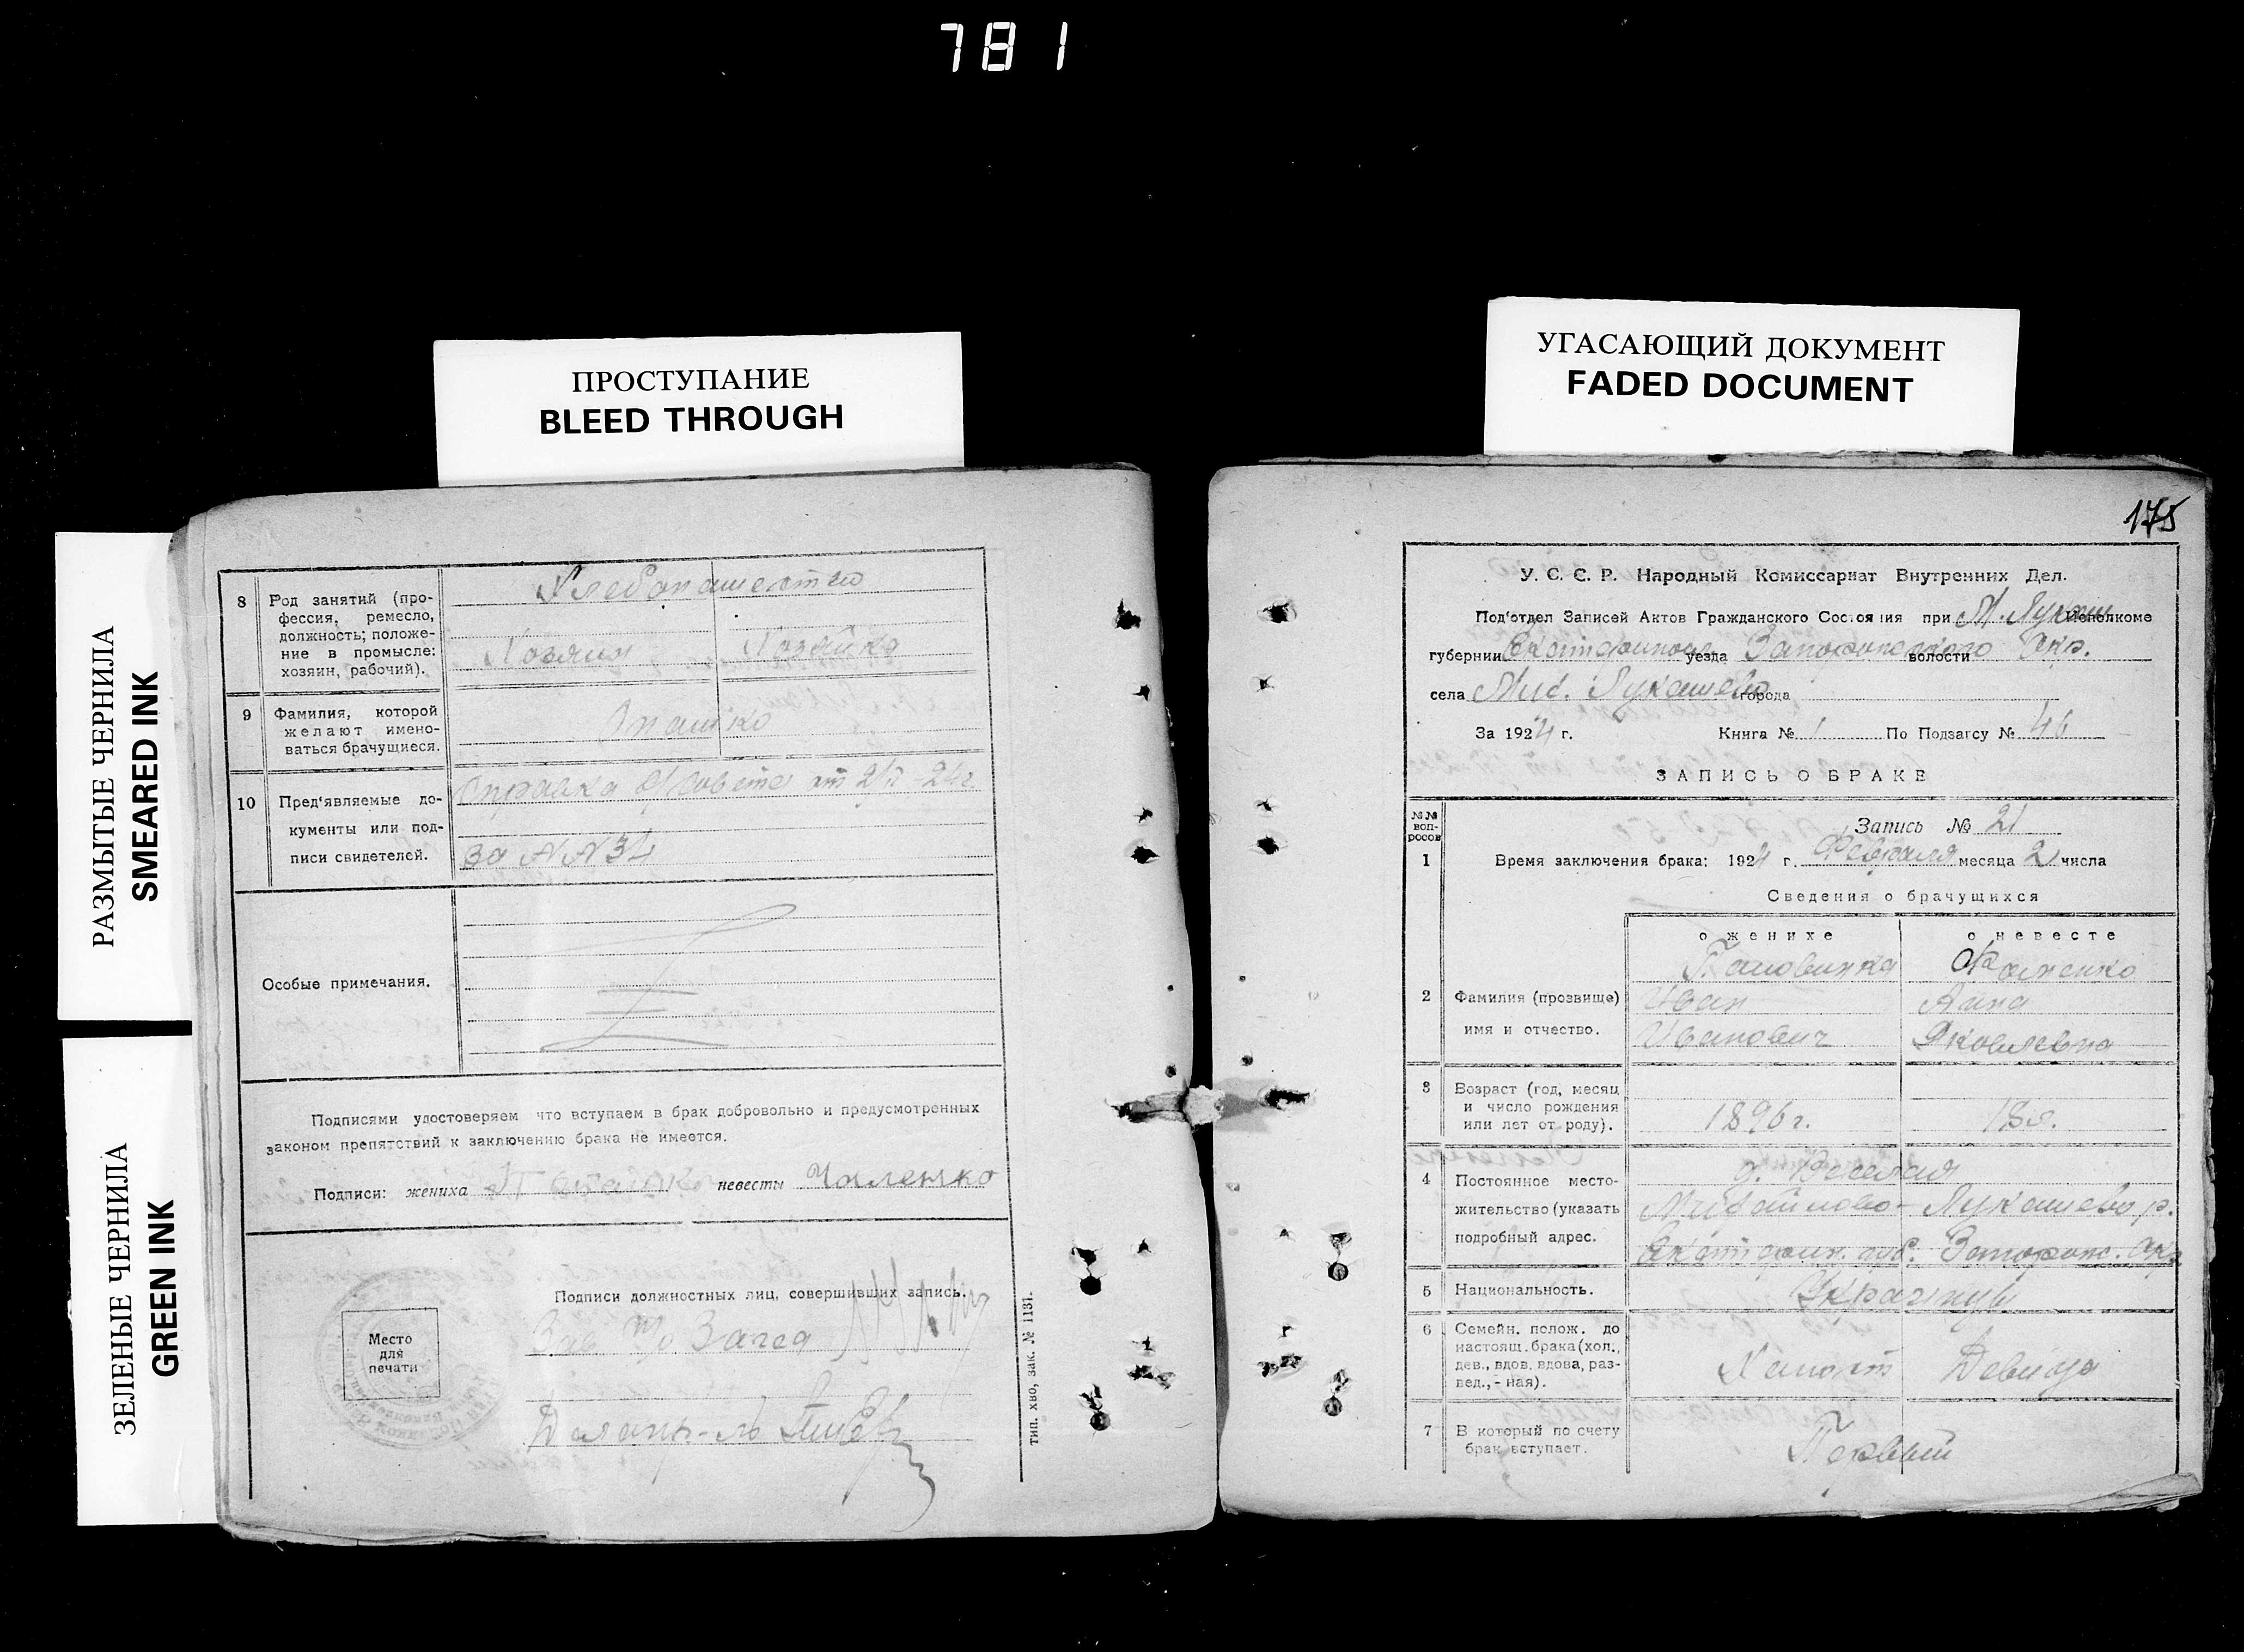 781
ПРОСТУПАНИЕ
BLEED THROUGH
УГАСАЮЩИЙ ДОКУМЕНТ
FADED DOCUMENT
РАЗМЫТЫЕ ЧЕРНИЛА
SMEARED INK
ЗЕЛЕНЫЕ ЧЕРНИЛА
GREEN INK
8 Род занятий (про-
фессия, ремесло,
должность; положе-
ние в промысле:
хозяин, рабочий).
Хлебопашество
Хозяин Хозяйка
9 Фамилия, которой
желают имено-
ваться брачущиеся.
10 Пред'являемые до-
кументы или под-
писи свидетелей.
Справка от 2/II-24г.
за №№34
Особые примечания.
Подписями удостоверяем что вступаем в брак добровольно и предусмотренных
законом препятствий к заключению брака не имеется.
Подписи: жениха невесты Чаленко
Подписи должностных лиц, совершивших запись.
Место
для
печати
Зав. Загса
Делопр-ль
тип. хво, зак. № 1137.
175
У. С. С. Р. Народный Комиссариат Внутренних Дел.
Под'отдел Записей Актов Гражданского Состояния при М. Лукаш Исполкоме
губернии Екатеринос уезда Запорожского волости Окр.
села Мих. Лукашево города
За 1924 г. Книга № 1 По Подзагсу № 46
ЗАПИСЬ О БРАКЕ
№№ воп-
росов
Запись № 21
1 Время заключения брака: 1924 г. Февраля месяца 2 числа
Сведения о брачущихся
о женихе о невесте
2 Фамилия (прозвище)
имя и отчество.
Иван Анна
Иванович Яковлевна
3 Возраст (год, месяц
и число рождения
или лет от роду).
1896 г. 18 л.
4 Постоянное место-
жительство (указать
подробный адрес.
д. Веселая
Михайлово-Лукашево р.
Екатерин. губ. Запорож. Окр.
5 Национальность.
6 Семейн. полож. до
настоящ. брака (хол.,
дев., вдов, вдова, раз-
вед.,-ная).
Холост Девица
7 В который по счету
брак вступает.
Первый